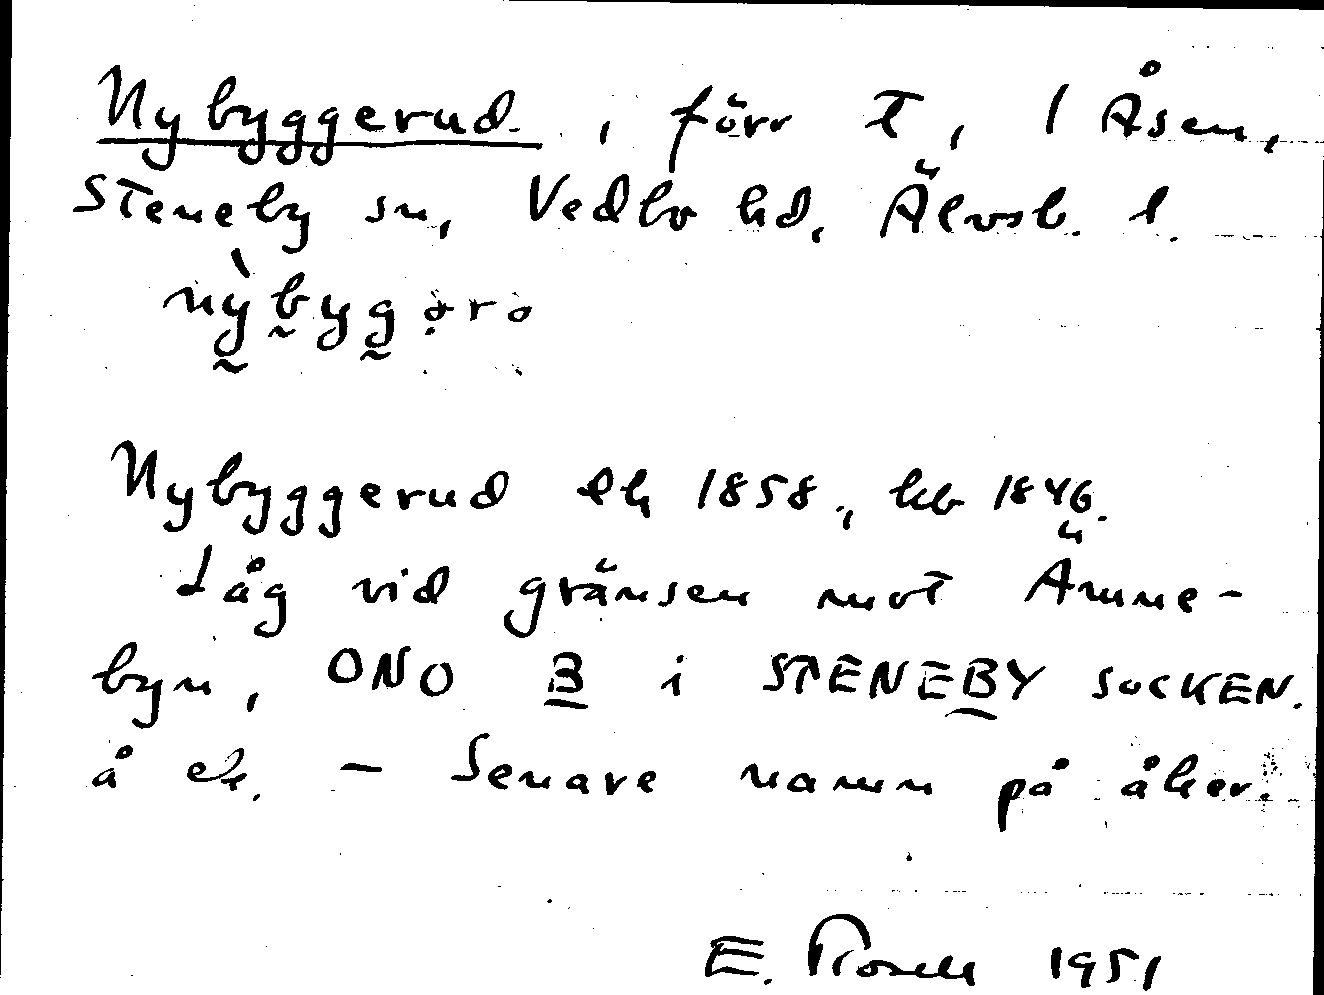 Nybyggerud, förr t, 1 Åsen,
Steneby sn, Vedbo hd, Älvsb. l.
nỳbygərə
Nybyggerud ek 1858, hb 1846.
Låg vid gränsen mot Ämne-
byn, ONO B i STENEBY SOCKEN.
å ek. – Senare namn på åker.
E. Rosell 1951